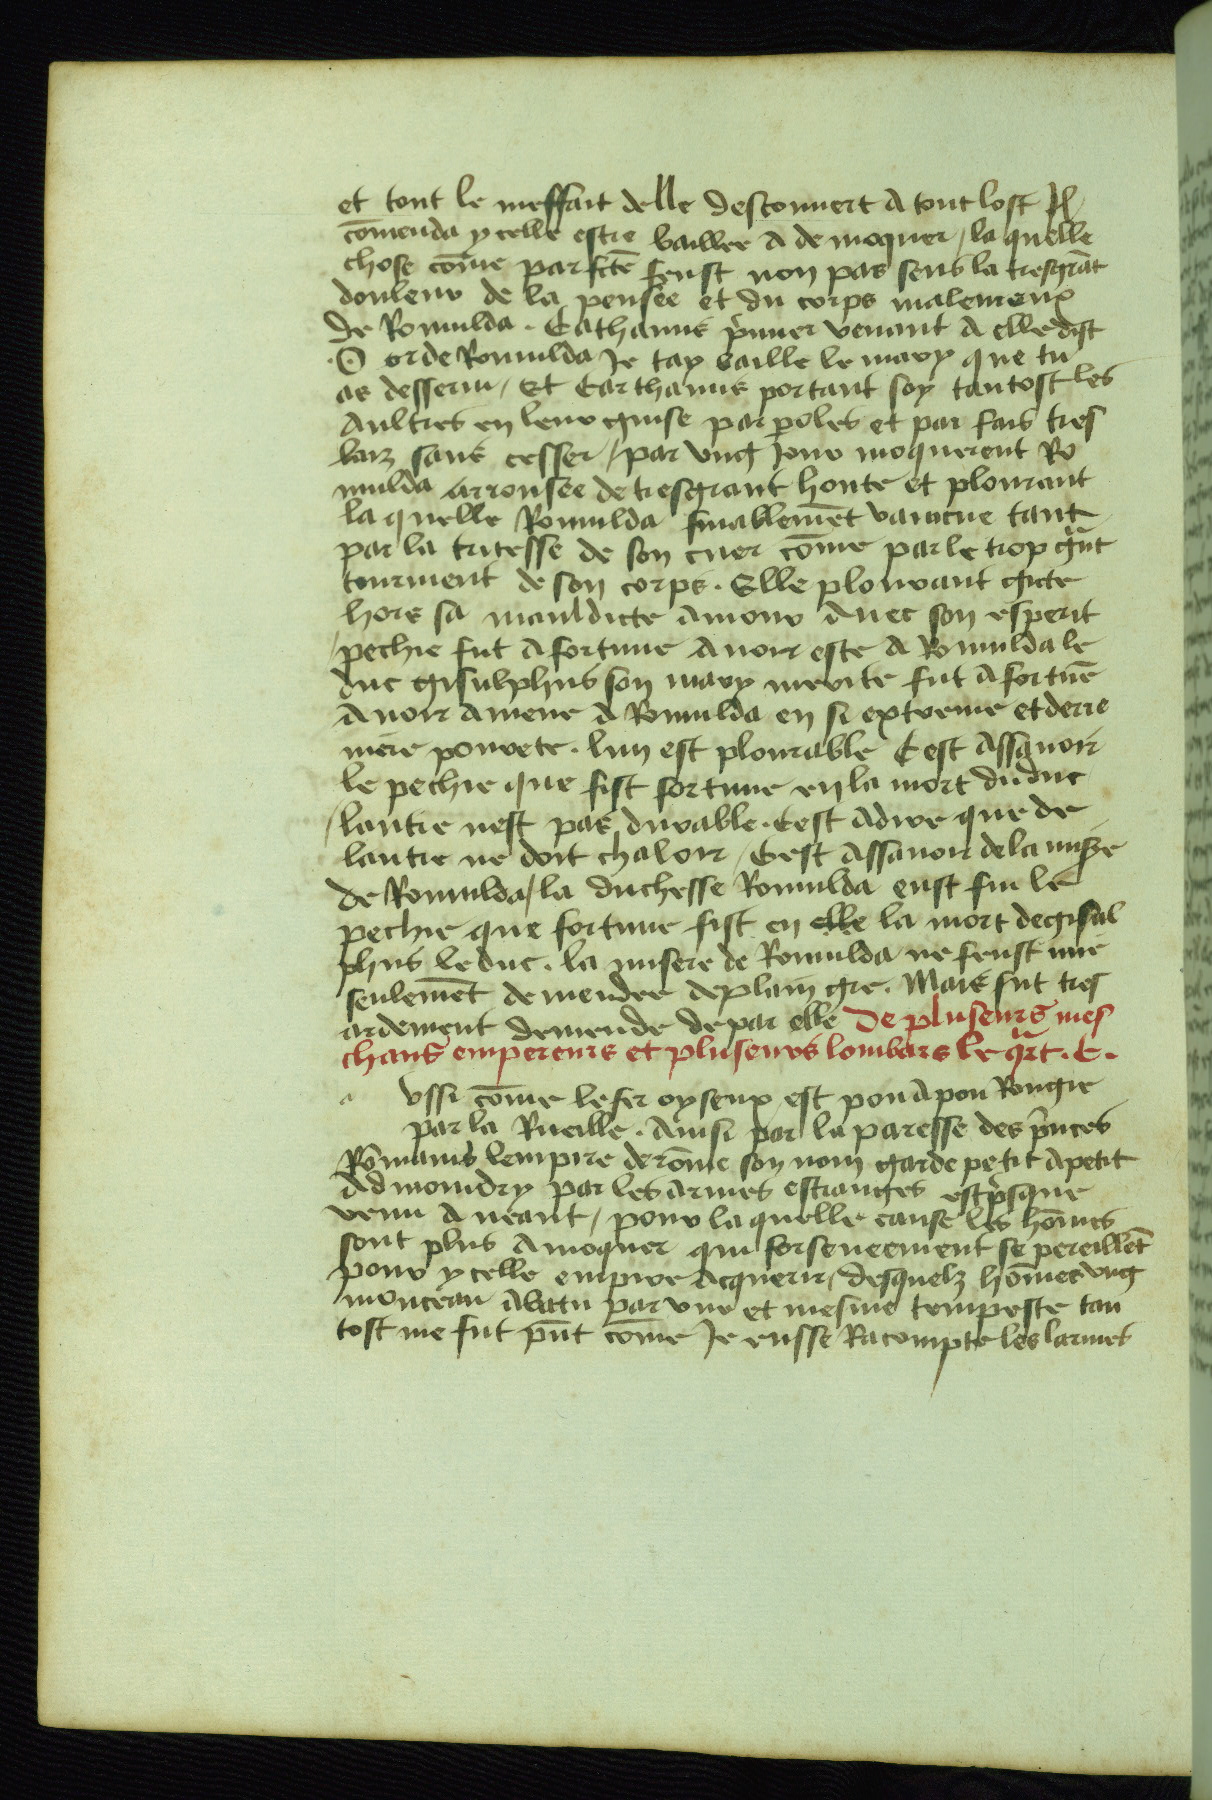 et tout le meffait delle descouuert a tout lost Jl
cōmenda ycelle estre baillee a demoquer / la quelle
chose cōme par fctē feust non pas sens la tresgrāt
douleur de la pensee et du corps malereux
de Romulda . Cathanus p̄mier venant a elle dist
O orde Romulda Je tay baille le mary que tu
as desserui / Et Carthanus portant soy tantost les
Aultres en leur guise par poles et par fais tres
laiz sans cesser / par vng iour moquerent Ro
mulda arrousee de tresgrant honte et plourant
la quelle Romulda finablemēt vaincue tant
par la tritesse de son cuer cōme par le trop gr̄nt
tourment de son corps . Elle plourant gicte
hors sa mauldicte amour auec son esperit
/ pechie fut a fortune auoir oste a Romulda le
duc gisulphus son mary merite fut a fortūe
auoir amene a Romulda en si extreme et derre
niere pourete . lun est plourable Cest assauoir
le pechie que fist fortune en la mort du duc
/ lautre nest pas durable . Cest adire que de
lautre ne doit chaloir / Cest assauoir de la mis̄e
de Romulda / la duchesse Romulda eust fui le
pechie que fortune fist en elle la mort de gisul
phus le duc . la misere de Romulda ne feust mie
seulemēt demendee deplain gre . Mais fut tres
ardement demende de par elle De pluseurs mes
chans empereurs et pluseurs lombars le q̄rt . C .
a vssi cōme le fer oyseux est pou a pou Rongie
par la Rueille . Ainsi par la paresse des p̄nces
Rōmains lempire de rōme son nom garde petit apetit
Admoindry par les armes estranges est p̄sque
venu a neant / pour la quelle cause les hōmes
sont plus amoquer qui forseneement se pereillēt
pour ycelle empire acquerir / desquelz hōmes vng
monceau abatu par vne et mesme tempeste tan
tost me fut p̄nt cōme Je eusse Racompte les larmes